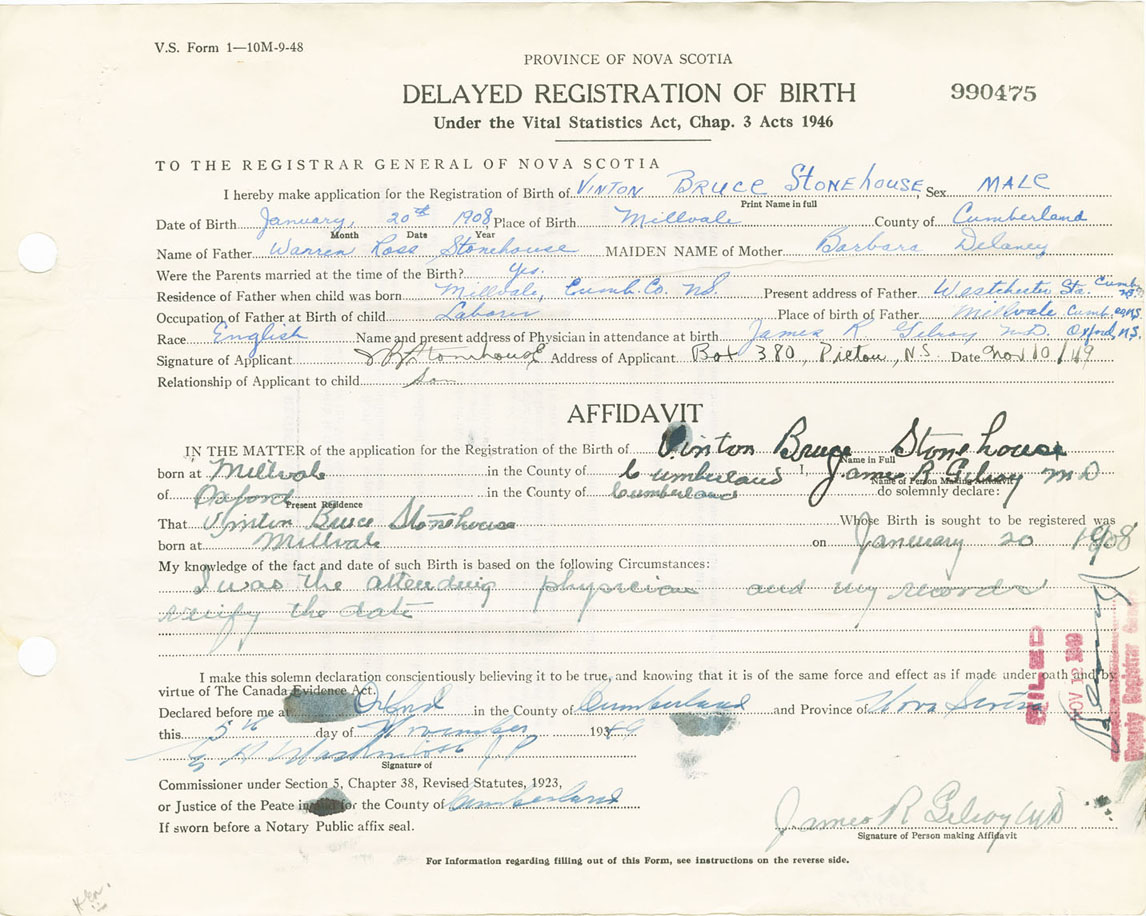 V.S. Form 1—10M-9-48
PROVINCE OF NOVA SCOTIA
DELAYED REGISTRATION OF BIRTH 990475
Under the Vital Statistics Act, Chap. 3 Acts 1946
TO THE REGISTRAR GENERAL OF NOVA SCOTIA
I hereby make application for the Registration of Birth of VINTON BRUCE STONEHOUSE, Sex MALE
Print Name in full
Date of Birth January, 20th 1908 Place of Birth Millvale County of Cumberland
Month Date Year
Name of Father Warren Ross Stonehouse MAIDEN NAME of Mother Barbara Delaney
Were the Parents married at the time of the Birth? Yes.
Residence of Father when child was born Millvale, Cumb. Co. N.S. Present address of Father Westchester Sta. Cumb. N.S.
Occupation of Father at Birth of child Laborer Place of birth of Father Millvale Cumb. Co. N.S.
Race English Name and present address of Physician in attendance at birth James R Gilroy M.D. Oxford, N.S.
Signature of Applicant Stonehouse Address of Applicant Box 380, Pictou, N.S. Date Nov 10/49
Relationship of Applicant to child Son
AFFIDAVIT
IN THE MATTER of the application for the Registration of the Birth of Vinton Bruce Stonehouse
Name in Full
born at Millvale in the County of Cumberland I, James R Gilroy MD
Name of Person Making Affidavit
of Oxford in the County of Cumberland do solemnly declare:
Present Residence
That Vinton Bruce Stonehouse Whose Birth is sought to be registered was
born at Millvale on January 20 1908
My knowledge of the fact and date of such Birth is based on the following Circumstances:
I was the attending physician and my records
verify the date
I make this solemn declaration conscientiously believing it to be true, and knowing that it is of the same force and effect as if made under oath and by
virtue of The Canada Evidence Act.
Declared before me at Oxford in the County of Cumberland and Province of Nova Scotia
this 5th day of November 1949
Signature of
Commissioner under Section 5, Chapter 38, Revised Statutes, 1923,
or Justice of the Peace for the County of Cumberland
If sworn before a Notary Public affix seal.
James R Gilroy MD
Signature of Person making Affidavit
For Information regarding filling out of this Form, see instructions on the reverse side.
FILED
NOV 12 1949
Deputy Registrar General